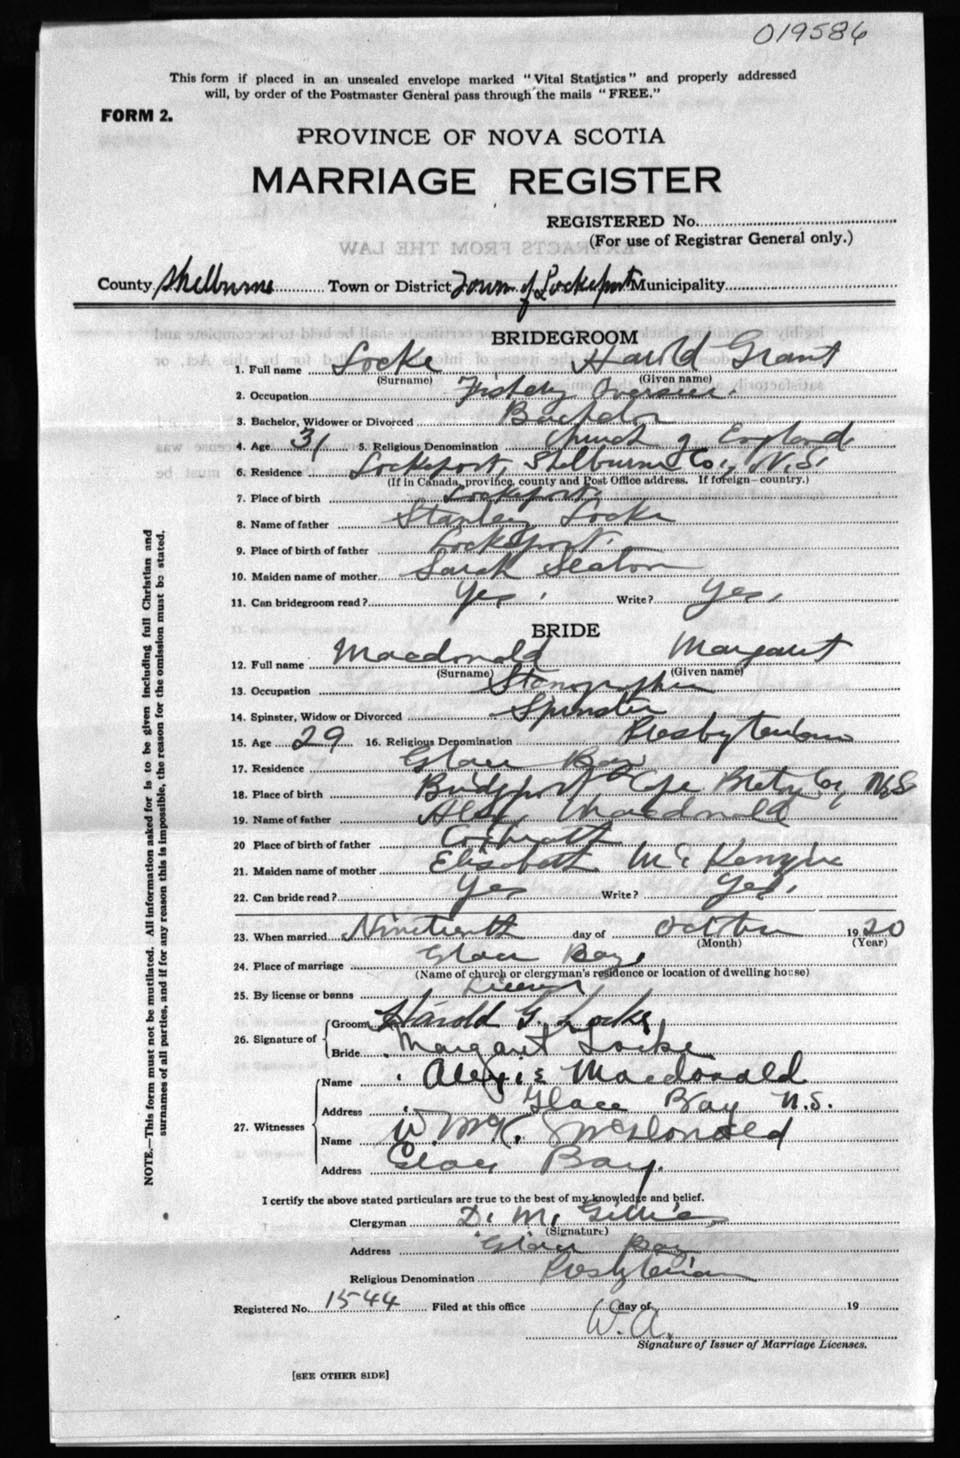 019586
This form if placed in an unsealed envelope marked "Vital Statistics" and properly addressed
will, by order of the Postmaster General pass through the mails "FREE."
FORM 2.
PROVINCE OF NOVA SCOTIA
MARRIAGE REGISTER
REGISTERED No.
(For use of Registrar General only.)
EXTRACTS FROM THE LAW
County Shelburne Town or District Town of Lockeport Municipality
BRIDEGROOM
1. Full name Locke Harold Grant
(Surname) (Given name)
2. Occupation Fishery Overseer.
3. Bachelor, Widower or Divorced Bachelor
4. Age 31 5. Religious Denomination Church of England
6. Residence Lockeport, Shelburne Co., N.S.
(If in Canada, province, county and Post Office address. If foreign—country.)
7. Place of birth Lockeport.
8. Name of father Stanley Locke
9. Place of birth of father Lockeport.
10. Maiden name of mother Sarah Seaton
11. Can bridegroom read? Yes, Write? Yes,
BRIDE
12. Full name Macdonald Margaret
(Surname) (Given name)
13. Occupation Stenographer
14. Spinster, Widow or Divorced Spinster
15. Age 29 16. Religious Denomination Presbyterian
17. Residence Glace Bay
18. Place of birth Bridgeport Cape Breton Co, N.S.
19. Name of father Alex, Macdonald
20 Place of birth of father
21. Maiden name of mother Elisabeth McKenzie
22. Can bride read? Yes Write? Yes,
23. When married Nineteenth day of October 1920
(Month) (Year)
24. Place of marriage Glace Bay,
(Name of church or clergyman's residence or location of dwelling house)
25. By license or banns License
26. Signature of Groom Harold G. Locke
Bride Margaret Locke
27. Witnesses Name Macdonald
Address Glace Bay N.S.
Name W. McK. McDonald
Address Glace Bay.
I certify the above stated particulars are true to the best of my knowledge and belief.
Clergyman D. M. Gillies
(Signature)
Address Glace Bay
Religious Denomination Presbyterian
Registered No. 1544 Filed at this office day of 19
W.A.
Signature of Issuer of Marriage Licenses.
[SEE OTHER SIDE]
NOTE.—This form must not be mutilated. All information asked for is to be given including full Christian and
surnames of all parties, and if for any reason this is impossible, the reason for the omission must be stated.